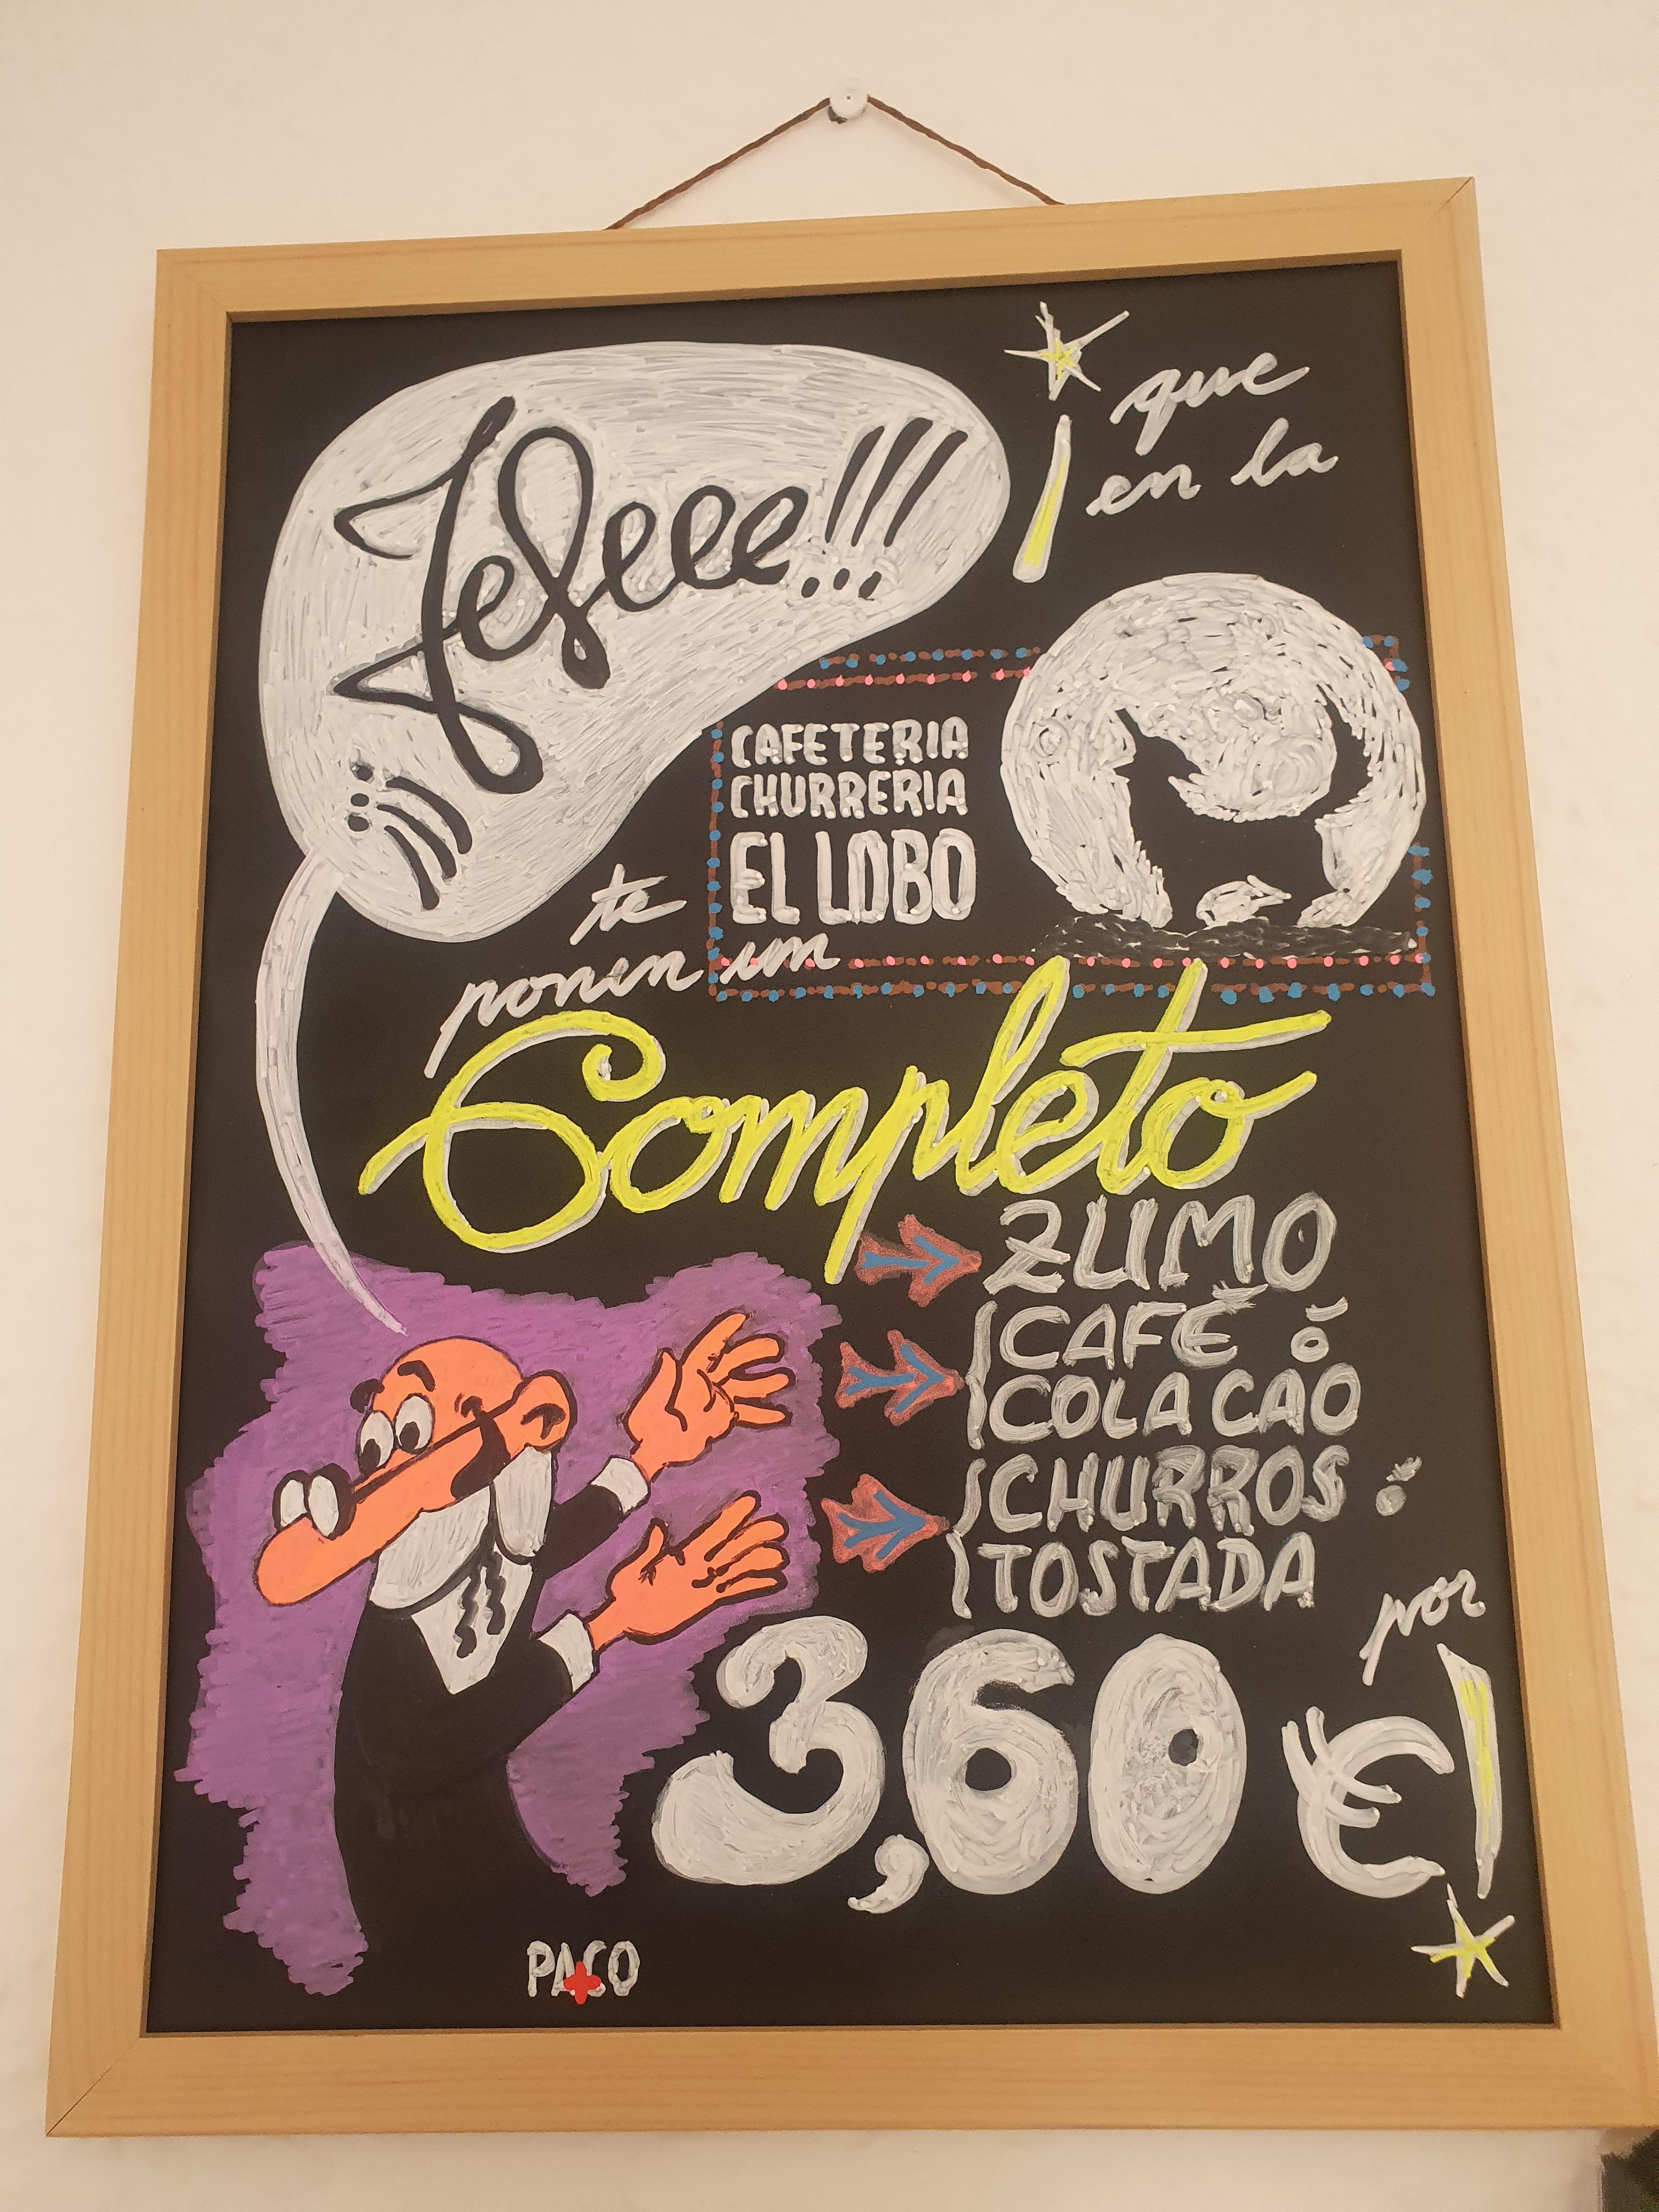 ¡¡¡Jefeee!!!
¡que
en la
CAFETERIA
CHURRERIA
EL LOBO
te
ponen un
Completo
ZUMO
CAFÉ ó
COLA CAO
CHURROS ó
TOSTADA
por
3,60 €!
PACO